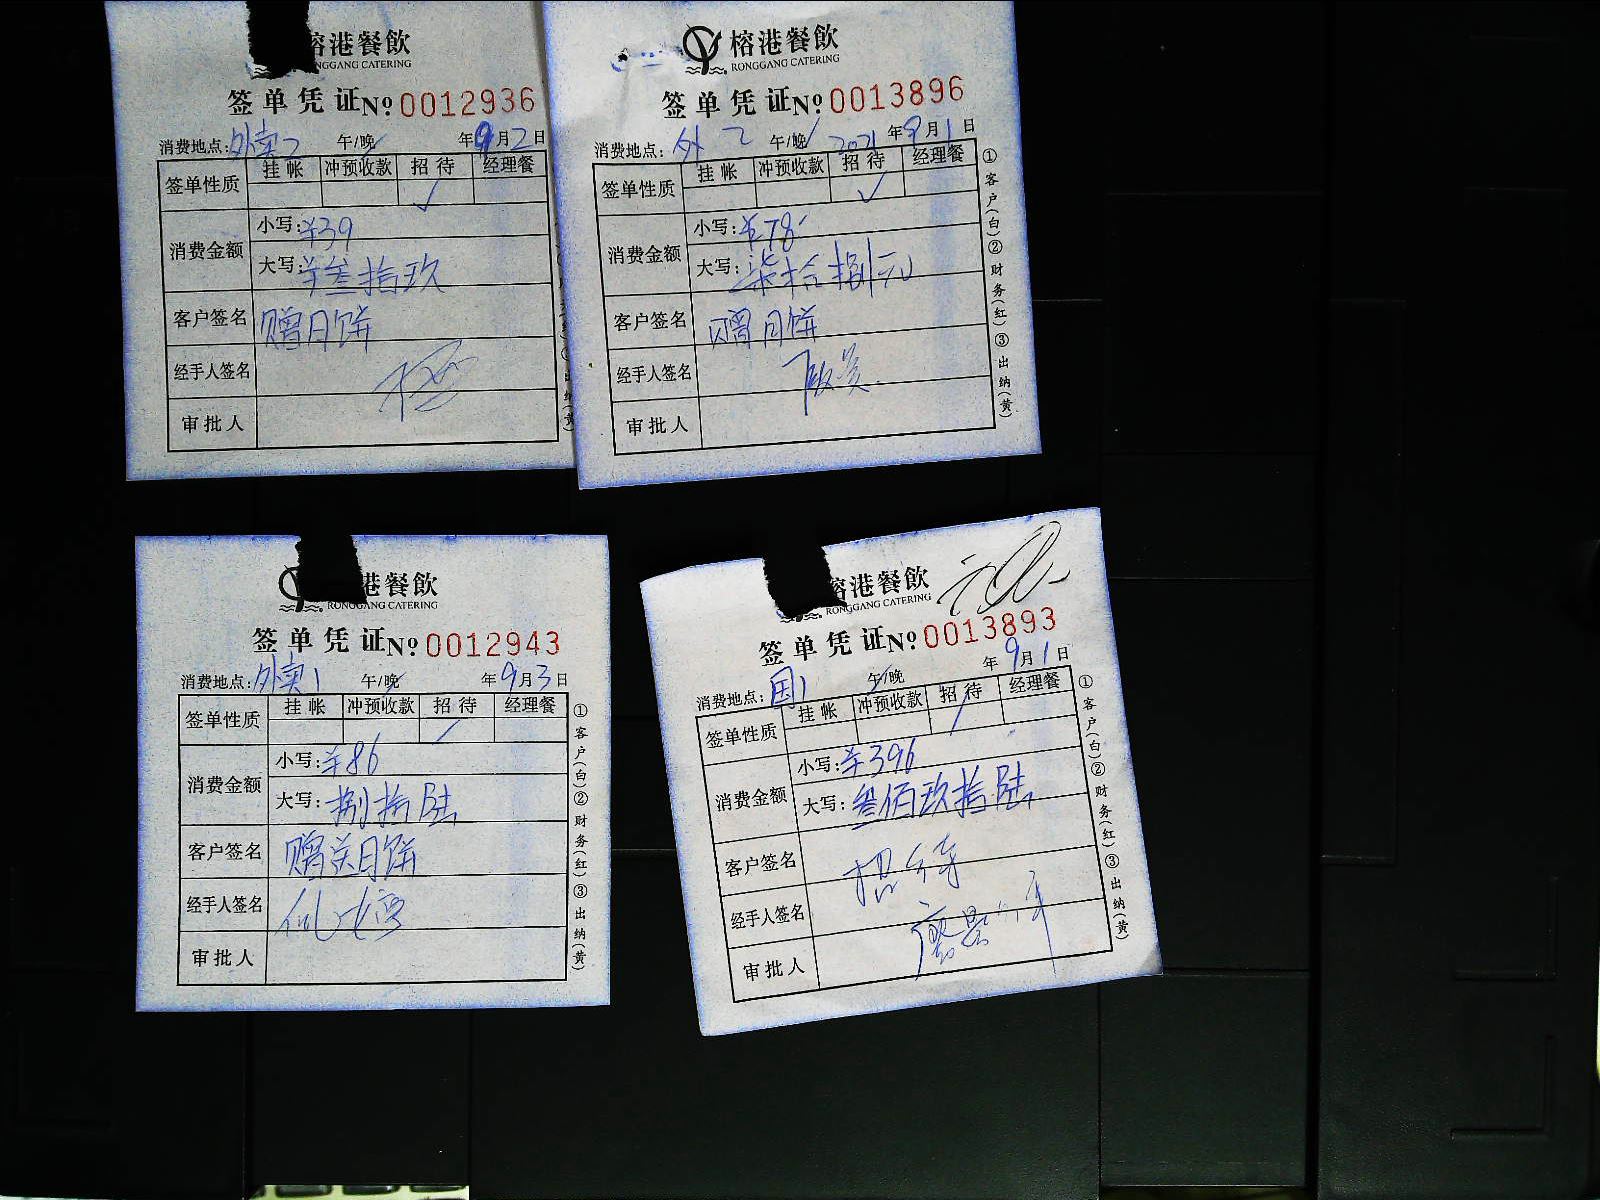 榕港餐飲
RONGGANG CATERING
签单凭证 No 0012936
消费地点: 外卖2 午/晚 年9月2日
挂帐 冲预收款 招待 经理餐
签单性质 ✓
消费金额 小写: ¥39
大写: ¥叁拾玖
客户签名 赠月饼
经手人签名
审批人
榕港餐飲
RONGGANG CATERING
签单凭证 No 0013896
消费地点: 外2 午/晚 2021年9月1日
挂帐 冲预收款 招待 经理餐
签单性质 ✓
消费金额 小写: ¥78
大写: 柒拾捌元
客户签名 赠月饼
经手人签名
审批人
①客户(白)②财务(红)③出纳(黄)
港餐飲
RONGGANG CATERING
签单凭证 No 0012943
消费地点: 外卖1 午/晚 年9月3日
挂帐 冲预收款 招待 经理餐
签单性质
消费金额 小写: ¥86
大写: 捌拾陆
客户签名 赠送月饼
经手人签名
审批人
①客户(白)②财务(红)③出纳(黄)
榕港餐飲
RONGGANG CATERING
签单凭证 No 0013893
消费地点: 国1 午/晚 年9月1日
挂帐 冲预收款 招待 经理餐
签单性质
消费金额 小写: ¥396
大写: 叁佰玖拾陆
客户签名 招待
经手人签名
审批人
①客户(白)②财务(红)③出纳(黄)